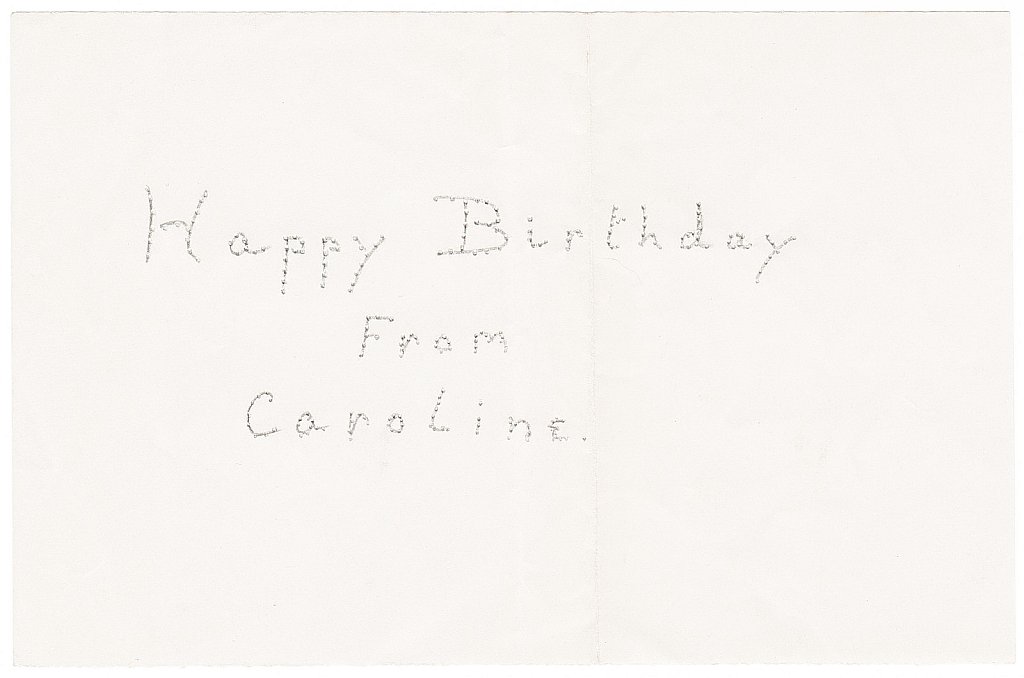 Happy Birthday
From
Caroline.